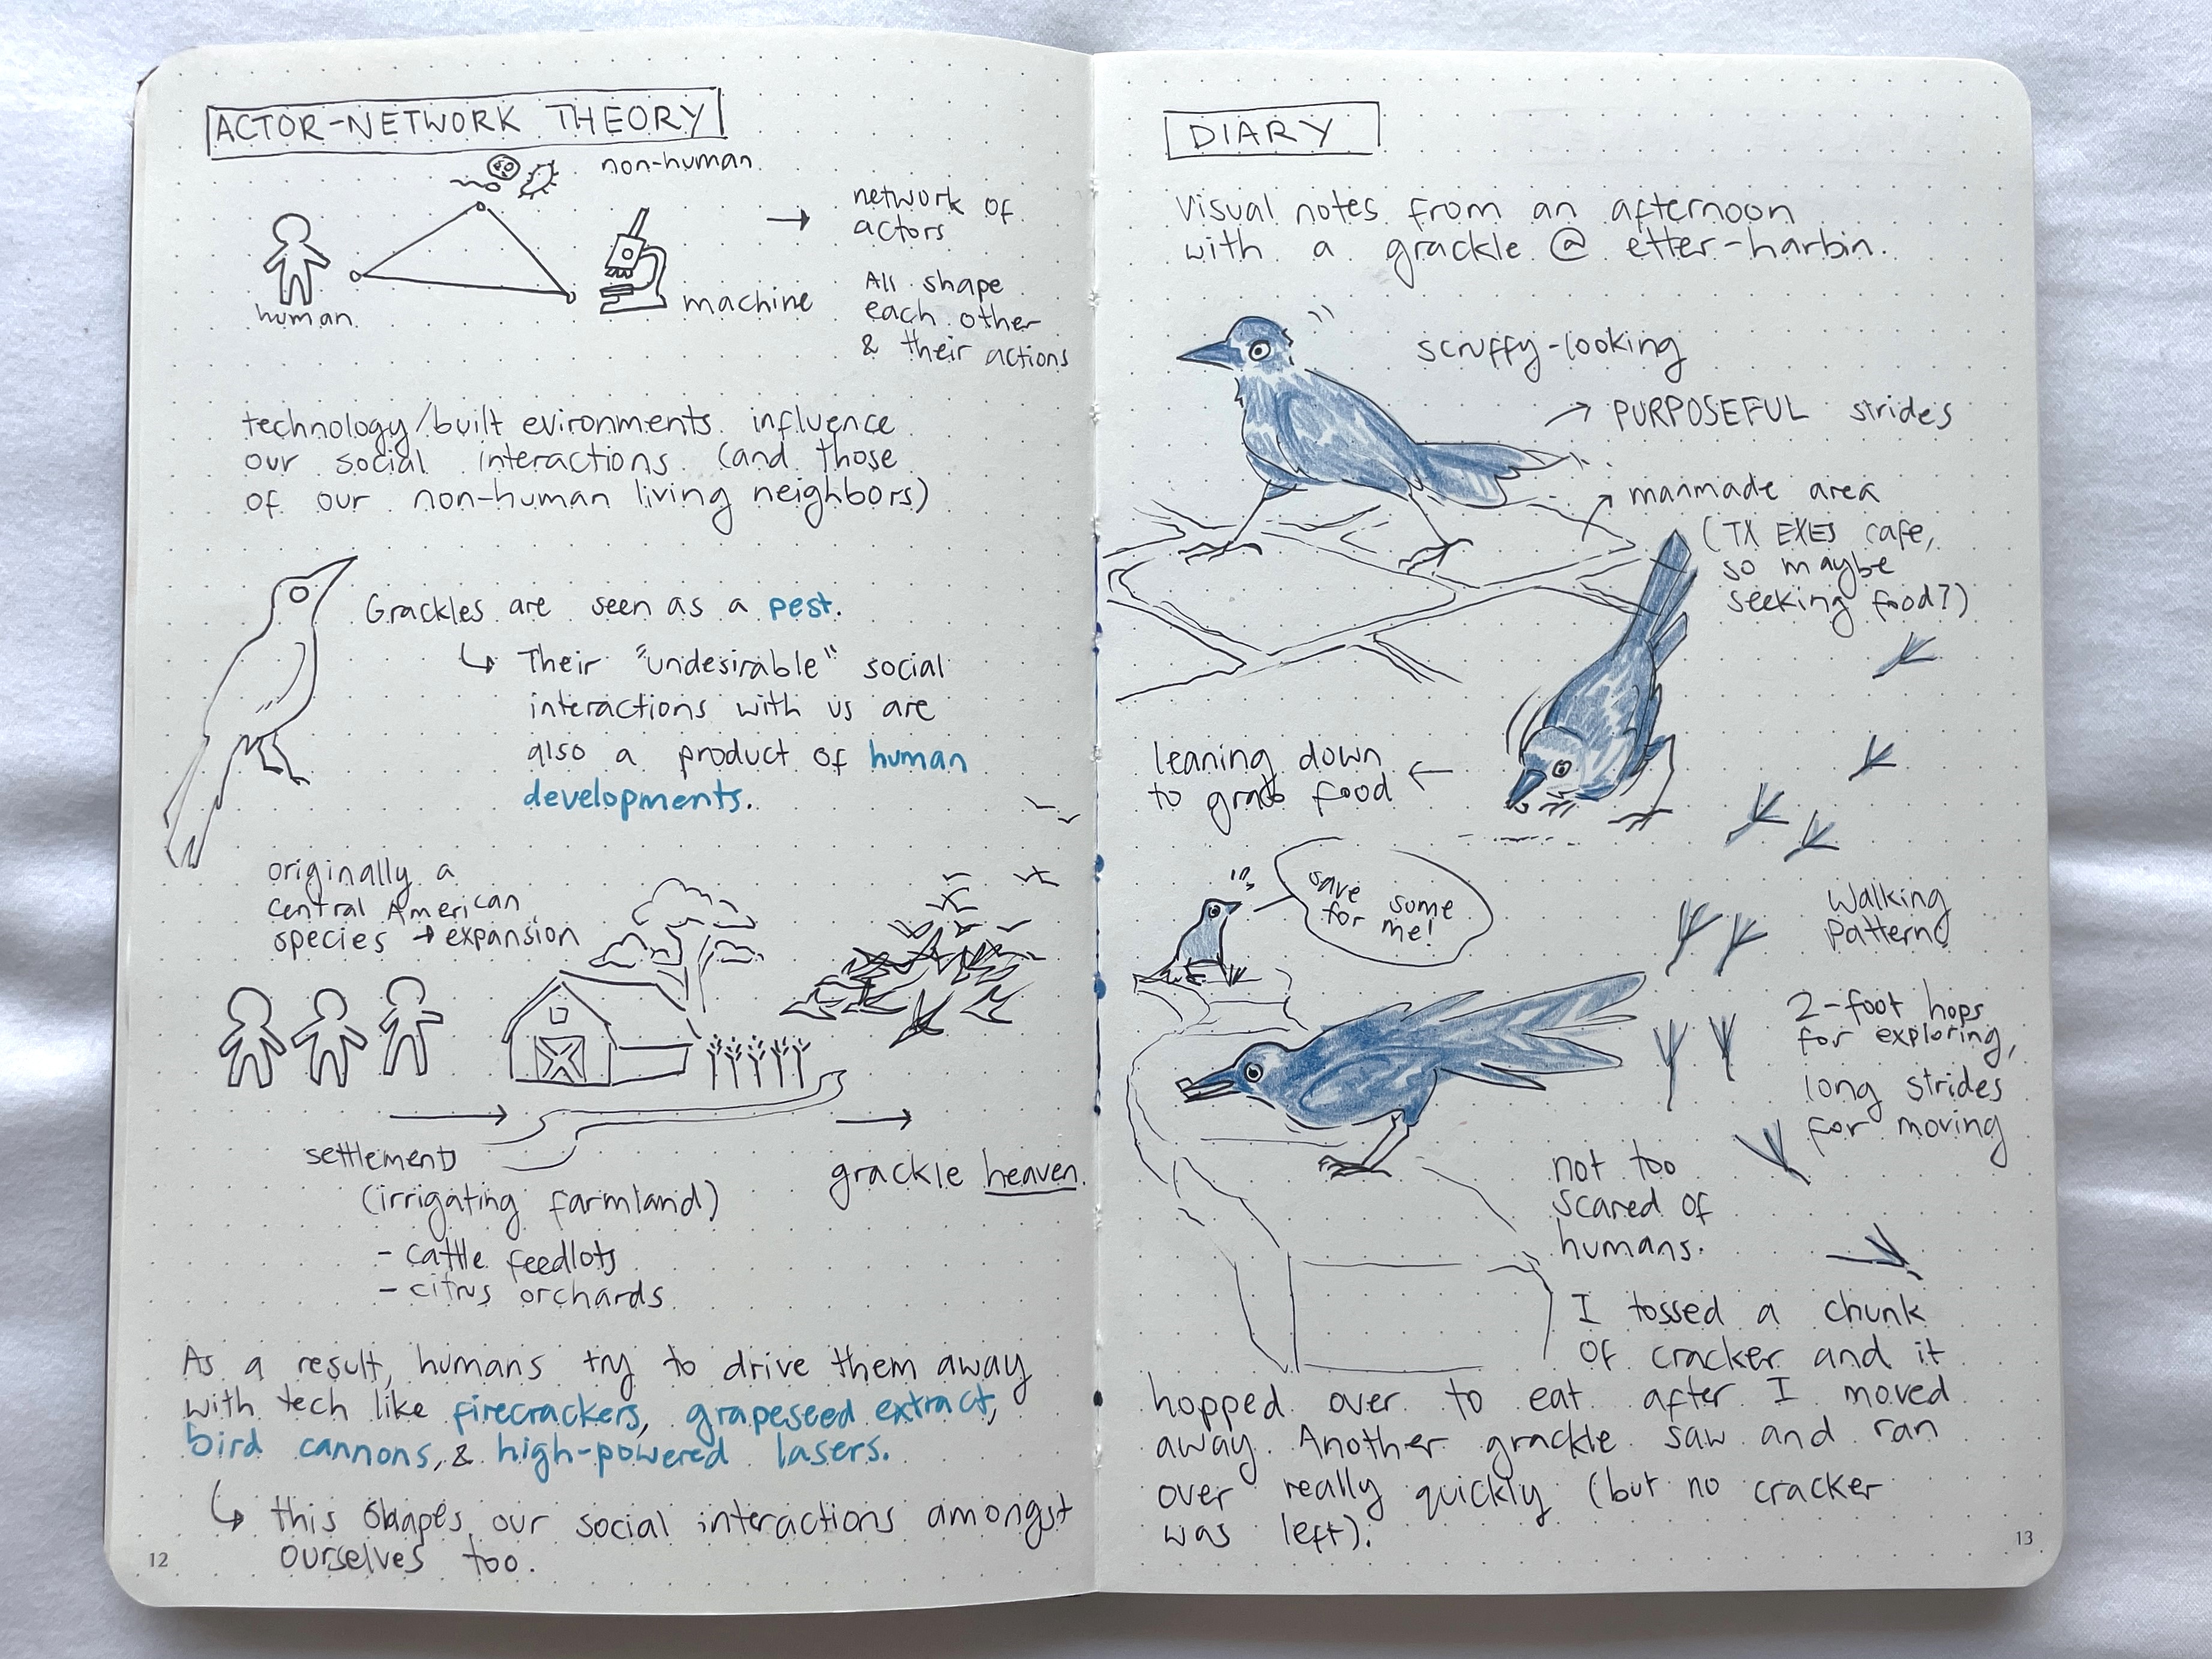 ACTOR-NETWORK THEORY
non-human.
human.
machine
→ network of
actors.
All shape
each other
& their actions
technology/built evironments influence
our social interactions (and those
of our non-human living neighbors)
Grackles are seen as a pest.
↳ Their "undesirable" social
interactions with us are
also a product of human
developments.
originally a
Central American
species → expansion
settlement
(irrigating farmland)
- cattle feedlots
- citrus orchards
grackle heaven.
As a result, humans try to drive them away
with tech like firecrackers, grapeseed extract,
bird cannons, & high-powered lasers.
↳ this shapes our social interactions amongst
ourselves too.
12
DIARY
Visual notes from an afternoon
with a grackle @ etter-harbin.
scruffy-looking
→ PURPOSEFUL strides
→ manmade area
(TX EXES cafe,
so maybe
seeking food?)
leaning down
to grab food ←
save some
for me!
Walking
Pattern
2-foot hops
for exploring,
long strides
for moving
not too
scared of
humans.
I tossed a chunk
of cracker and it
hopped over to eat after I moved
away. Another grackle saw and ran
over really quickly (but no cracker
was left).
13